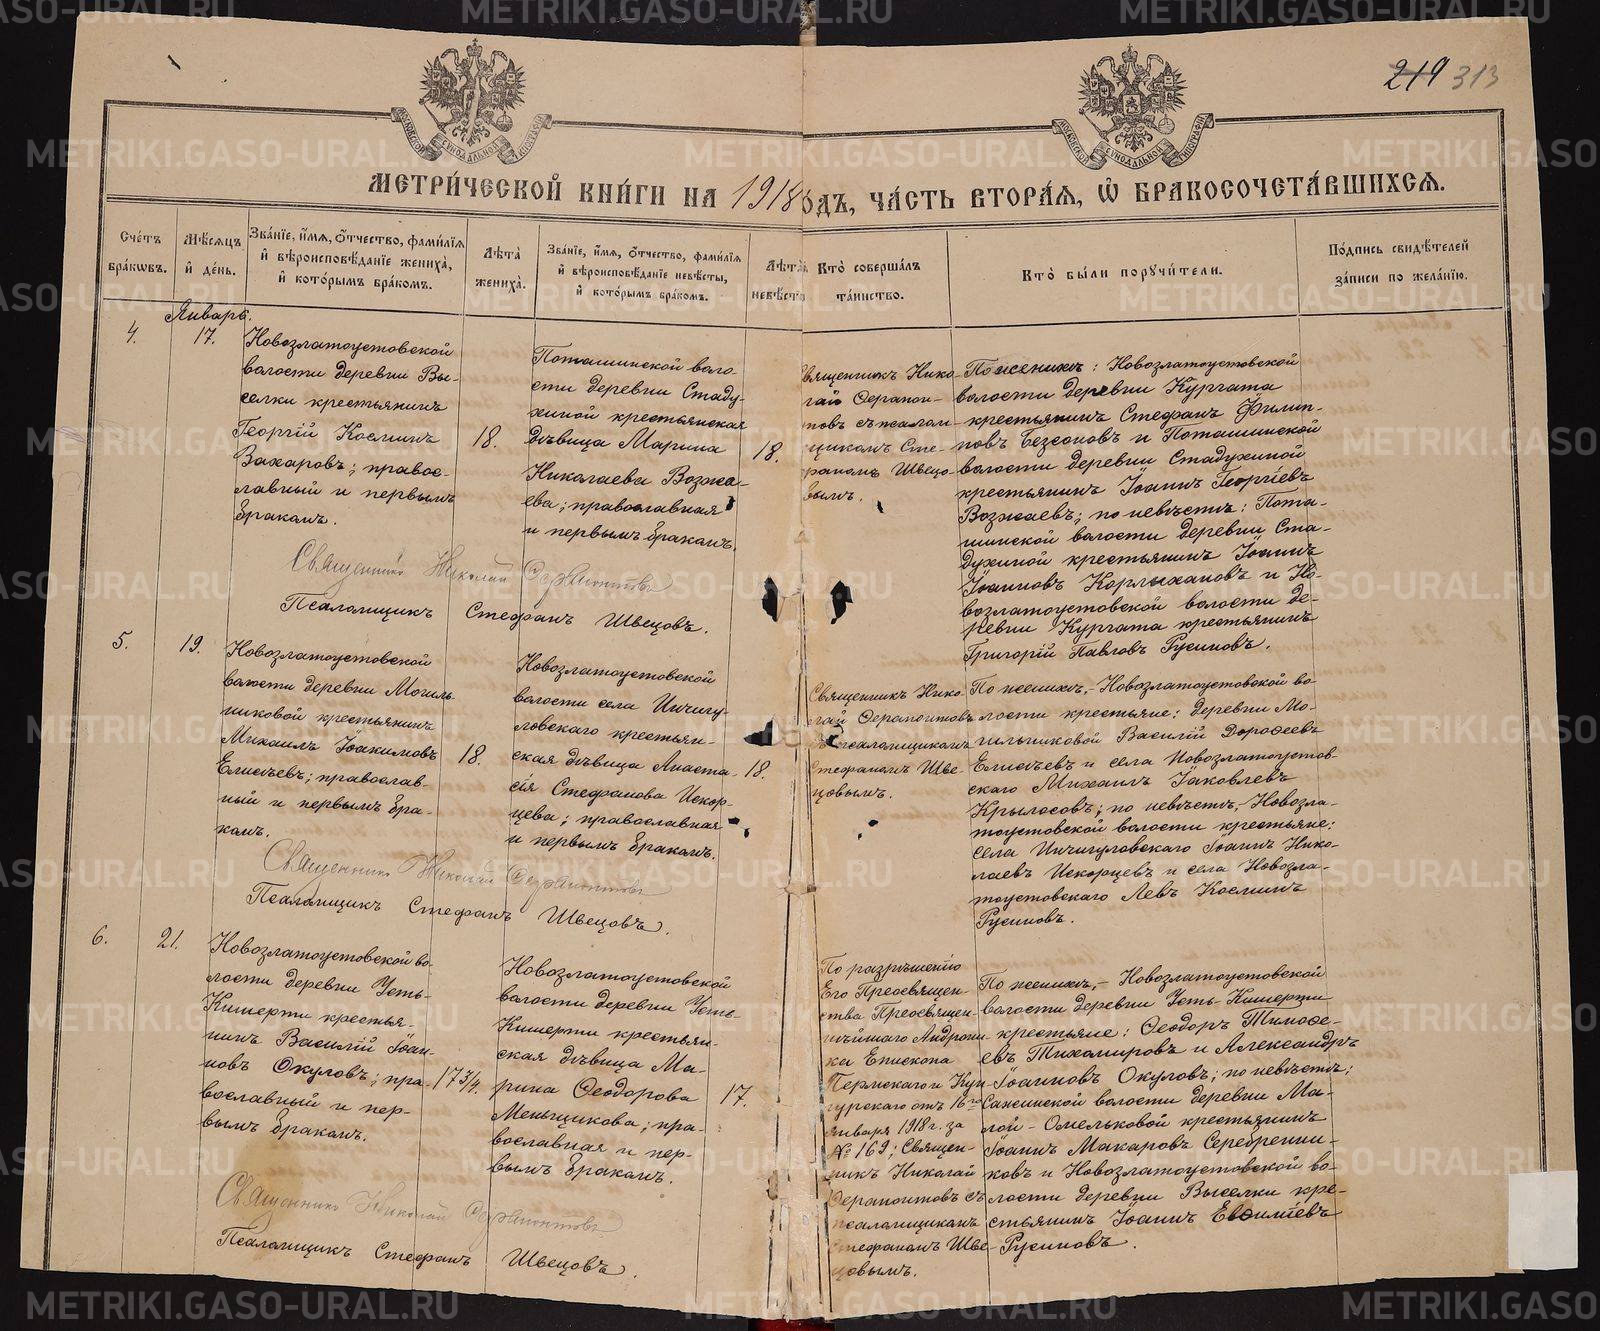 219 313
МОСКОВСКОЙ СѴНОДАЛЬНОЙ ТИПОГРАФІИ
МОСКОВСКОЙ СѴНОДАЛЬНОЙ ТИПОГРАФІИ
МЕТРИ́ЧЕСКОЙ КНИ́ГИ НА 1918 ГОДЪ, ЧА́СТЬ ВТОРА́Я, Ѡ БРАКОСОЧЕТА́ВШИХСЯ.
Сче́тъ бра́кωвъ.
Мѣ́сяцъ и де́нь.
Зва́нїе, и́мя, о́тчество, фами́лїя и вѣроисповѣ́данїе жениха̀, и кото́рымъ бра́комъ.
Лѣта̀ жениха̀.
Зва́нїе, и́мя, о́тчество, фами́лїя и вѣроисповѣ́данїе невѣ́сты, и кото́рымъ бра́комъ.
Лѣта̀ невѣ́сты
Кто̀ соверша́лъ та́инство.
Кто̀ бы́ли поручи́тели.
По́дпись свидѣ́телей за́писи по жела́нїю.
Января.
4.
17.
Новозлатоустовской
волости деревни Вы-
селки крестьянинъ
Георгій Косминъ
Захаровъ; правос-
лавный и первымъ
бракомъ.
18.
Поташинской воло
сти деревни Стаду-
хиной крестьянская
дѣвица Марина
Николаева Возжа-
ева; православная
и первымъ бракомъ.
18.
Священникъ Нико-
лай Серапион-
товъ съ псалом-
щикомъ Сте-
фаномъ Швецо-
вымъ.
По женихѣ: Новозлатоустовской
волости деревни Кургата
крестьянинъ Стефанъ Филип-
повъ Безсоновъ и Поташинской
волости деревни Стадухиной
крестьянинъ Іоаннъ Георгіевъ
Возжаевъ; по невѣстѣ: Пота-
шинской волости деревни Ста-
духиной крестьянинъ Іоаннъ
Іоанновъ Корлыхановъ и Но-
возлатоустовской волости де-
ревни Кургата крестьянинъ
Григорій Павловъ Русиновъ.
Священникъ Николай Серапионтовъ
Псаломщикъ Стефанъ Швецовъ.
5.
19.
Новозлатоустовской
волости деревни Могиль
никовой крестьянинъ
Михаилъ Іоакимовъ
Елисѣевъ; православ-
ный и первымъ бра-
комъ.
18.
Новозлатоустовской
волости села Ничигу-
ловскаго крестьян-
ская дѣвица Анаста-
сія Стефанова Искор-
цева; православная
и первымъ бракомъ.
18.
Священникъ Нико-
лай Серапонтовъ
съ псаломщикомъ
Стефаномъ Шве-
цовымъ.
По женихѣ,- Новозлатоустовской во-
лости крестьяне: деревни Мо-
гильниковой Василій Дорофеевъ
Елисѣевъ и села Новозлатоустов-
скаго Михаилъ Іаковлевъ
Крылосовъ; по невѣстѣ,- Новозла-
тоустовской волости крестьяне:
села Ничигуловскаго Іоаннъ Нико-
лаевъ Искорцевъ и села Новозла-
тоустовскаго Левъ Косминъ
Русиновъ.
Священникъ Николай Серапионтовъ
Псаломщикъ Стефанъ Швецовъ.
6.
21.
Новозлатоустовской во-
лости деревни Усть-
Кишерти крестья-
нинъ Василій Іоан-
новъ Окуловъ; пра-
вославный и пер-
вымъ бракомъ.
17 3/4.
Новозлатоустовской
волости деревни Усть-
Кишерти крестьян-
ская дѣвица Ма-
рина Ѳеодорова
Меньщикова; пра-
вославная и пер-
вымъ бракомъ.
17.
По разрѣшенію
Его Преосвящен-
ства Преосвящен-
нѣйшаго Андрони-
ка Епископа
Пермскаго и Кун-
гурскаго отъ 16го
января 1918 г. за
№ 169; Священ-
никъ Николай
Серапонтовъ съ
псаломщикомъ
Стефаномъ Шве-
цовымъ.
По женихѣ,- Новозлатоустовской
волости деревни Усть-Кишерти
крестьяне: Ѳеодоръ Тимофе-
евъ Тихомировъ и Александръ
Іоанновъ Окуловъ; по невѣстѣ;
Сажинской волости деревни Ма-
лой-Омельковой крестьянинъ
Іоаннъ Макаровъ Серебренни-
ковъ и Новозлатоустовской во-
лости деревни Выселки кре-
стьянинъ Іоаннъ Евѳиміевъ
Русиновъ.
Священникъ Николай Серапионтовъ
Псаломщикъ Стефанъ Швецовъ.
METRIKI.GASO-URAL.RU